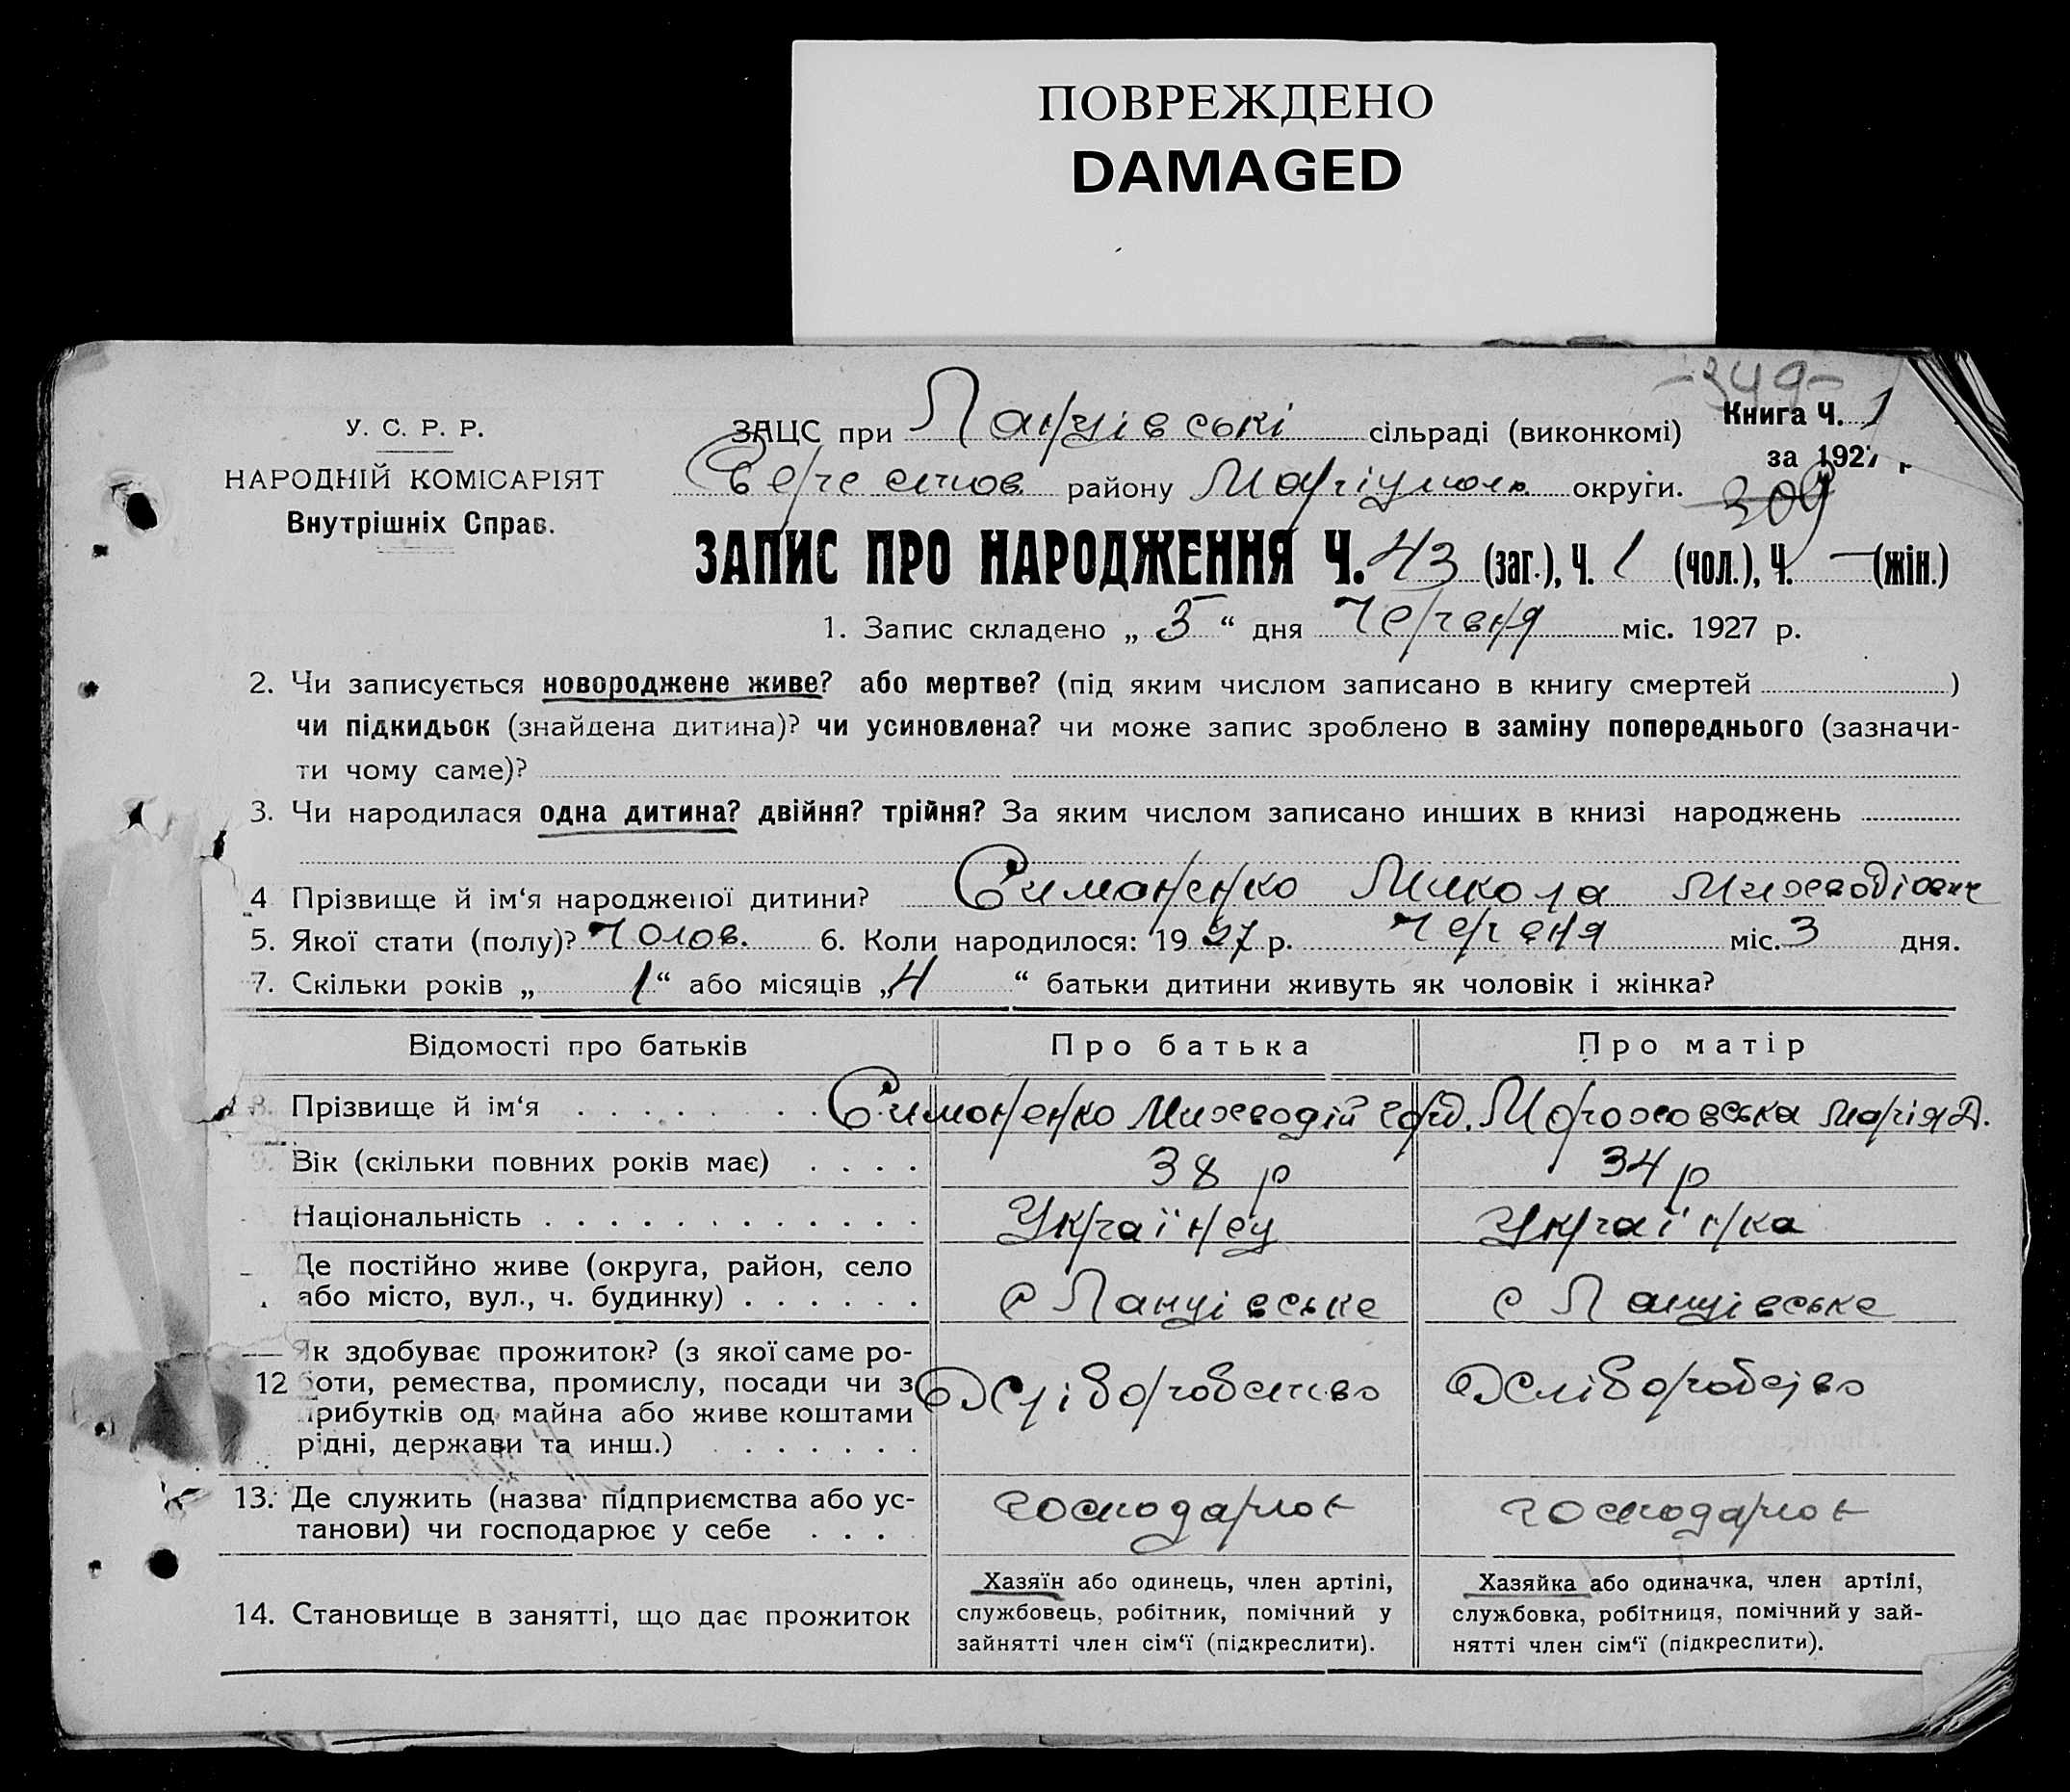 ПОВРЕЖДЕНО
DAMAGED
-349-
У. С. Р. Р.
НАРОДНІЙ КОМІСАРІЯТ
Внутрішніх Справ.
ЗАЦС при Ланцівські сільраді (виконкомі)
Книга Ч. 1
за 1927 р
району Маріупол. округи.
309
ЗАПИС ПРО НАРОДЖЕННЯ Ч. 43 (заг.), Ч. 1 (чол.), Ч. — (жін.)
1. Запис складено „ 5 “ дня Червня міс. 1927 р.
2. Чи записується новороджене живе? або мертве? (під яким числом записано в книгу смертей )
чи підкидьок (знайдена дитина)? чи усиновлена? чи може запис зроблено в заміну попереднього (зазначи-
ти чому саме)?
3. Чи народилася одна дитина? двійня? трійня? За яким числом записано инших в книзі народжень
4 Прізвище й ім‘я народженої дитини? Симоненко Микола Мифодієвич
5. Якої стати (полу)? Чолов. 6. Коли народилося: 1927 р. Червня міс. 3 дня.
7. Скільки років „ 1 “ або місяців „ 4 “ батьки дитини живуть як чоловік і жінка?
Відомості про батьків Про батька Про матір
8. Прізвище й ім‘я Симоненко Мифодій Горд. Морозовська Марія Д.
9. Вік (скільки повних років має) 38 р 34 р
Національність Українец Українка
Де постійно живе (округа, район, село
або місто, вул., ч. будинку) с Ланцівське с Ланцівське
Як здобуває прожиток? (з якої саме ро-
12 боти, ремества, промислу, посади чи з Хліборобство Хліборобство
прибутків од майна або живе коштами
рідні, держави та инш.)
13. Де служить (назва підприємства або ус-
танови) чи господарює у себе господарює господарює
14. Становище в занятті, що дає прожиток
Хазяїн або одинець, член артілі,
службовець, робітник, помічний у
зайнятті член сім‘ї (підкреслити).
Хазяйка або одиначка, член артілі,
службовка, робітниця, помічний у зай-
нятті член сім‘ї (підкреслити).